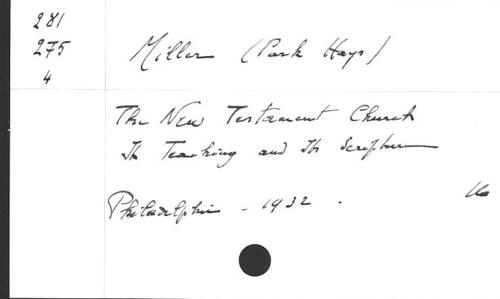 281
275
4
Miller (Park Hays)
The New Testament Church
Its Teaching and Its Scripture
Philadelphia - 1932.